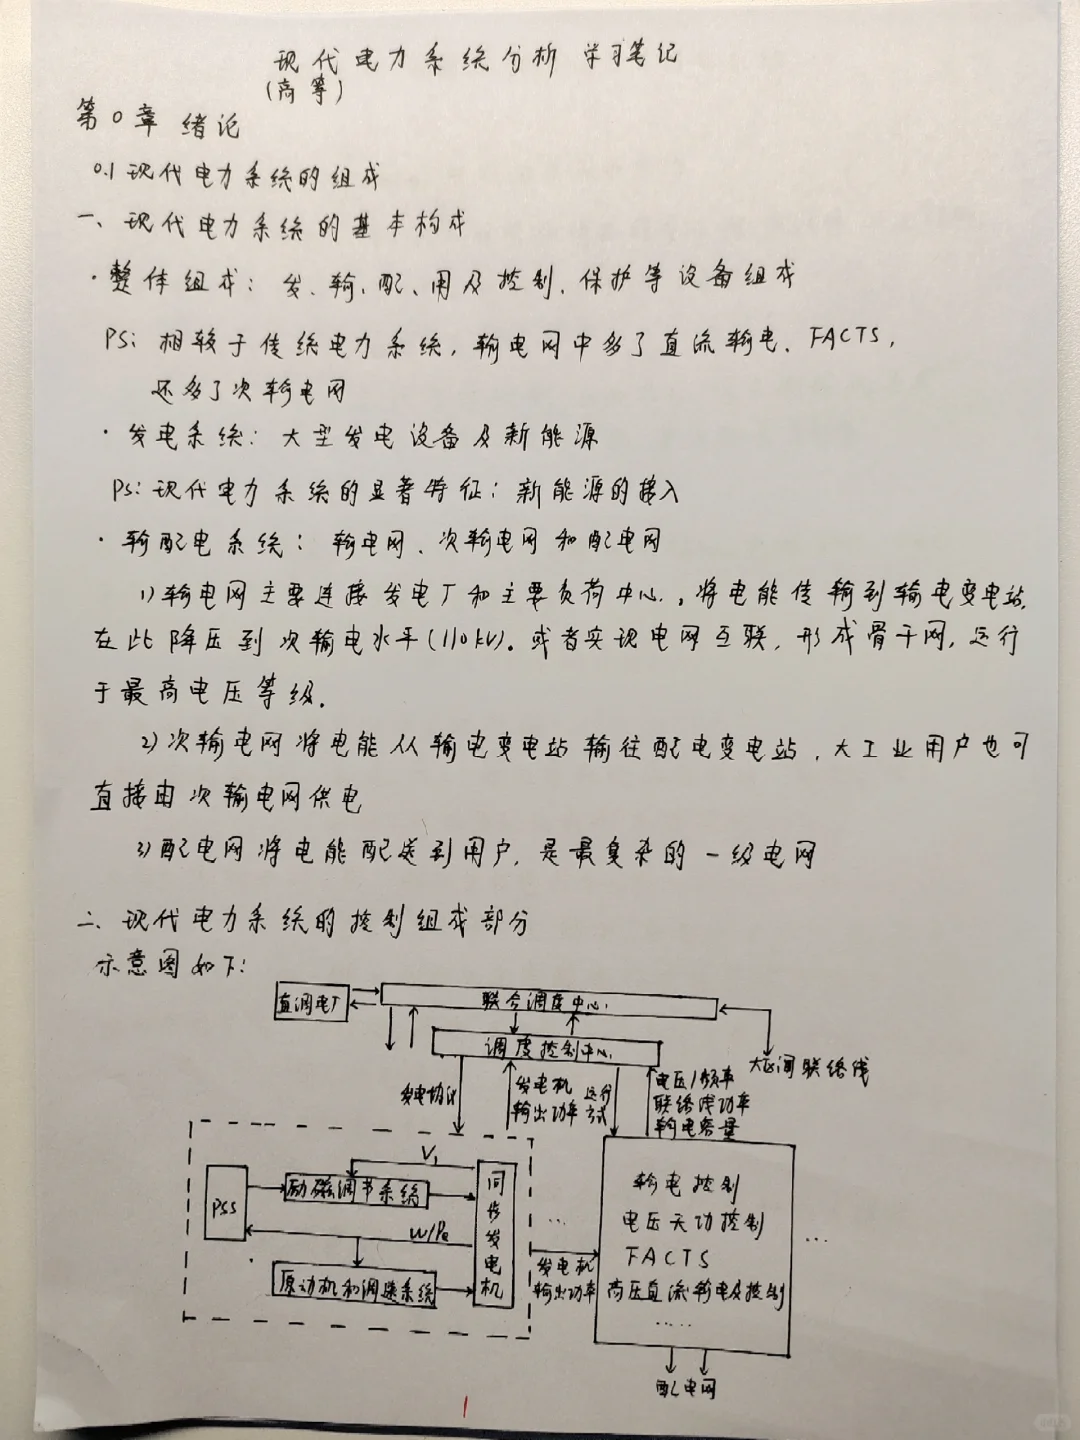 现代电力系统分析 学习笔记
(高等)
第0章 绪论
0.1 现代电力系统的组成
一、现代电力系统的基本构成
·整体组成：发、输、配、用及控制、保护等设备组成
PS：相较于传统电力系统，输电网中多了直流输电、FACTS，
还多了次输电网
·发电系统：大型发电设备及新能源
PS：现代电力系统的显著特征：新能源的接入
·输配电系统：输电网、次输电网和配电网
1)输电网主要连接发电厂和主要负荷中心，将电能传输到输电变电站，
在此降压到次输电水平(110kV)。或者实现电网互联，形成骨干网，运行
于最高电压等级.
2)次输电网将电能从输电变电站输往配电变电站，大工业用户也可
直接由次输电网供电
3)配电网将电能配送到用户，是最复杂的一级电网
二、现代电力系统的控制组成部分
示意图如下：
直调电厂
联合调度中心
调度控制中心
大区间联络线
发电协议
发电机
输出功率
运行
方式
电压/频率
联络线功率
输电容量
PSS
励磁调节系统
V1
同步发电机
W/Pe
原动机和调速系统
...
发电机
输出功率
输电控制
电压无功控制
FACTS
高压直流输电及控制
.....
...
配电网
1